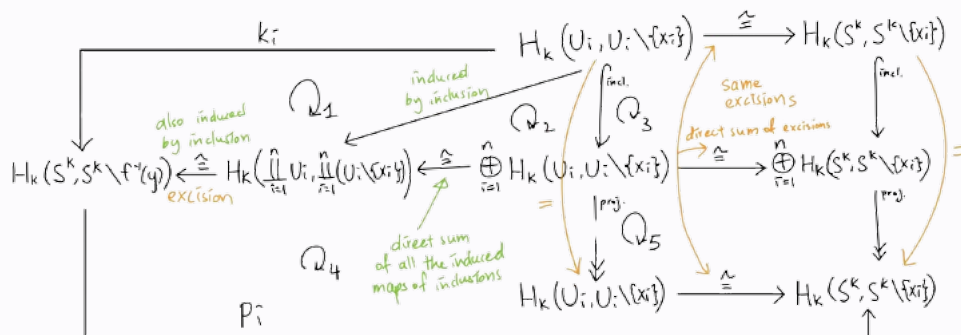 kᵢ
Hₖ(Uᵢ, Uᵢ\{xᵢ}) ≅ Hₖ(Sᵏ, Sᵏ\{xᵢ})
↻1
induced
by inclusion
incl.
incl.
same
excisions
also induced
by inclusion
↻2
↻3
direct sum of excisions
Hₖ(Sᵏ, Sᵏ\f⁻¹(y)) ≅ Hₖ(∐ⁿᵢ₌₁ Uᵢ, ∐ⁿᵢ₌₁(Uᵢ\{xᵢ})) ≅ ⊕ⁿᵢ₌₁ Hₖ(Uᵢ, Uᵢ\{xᵢ}) ≅ ⊕ⁿᵢ₌₁ Hₖ(Sᵏ, Sᵏ\{xᵢ})
excision
=
=
proj.
proj.
↻4
direct sum
of all the induced
maps of inclusions
↻5
Hₖ(Uᵢ, Uᵢ\{xᵢ}) ≅ Hₖ(Sᵏ, Sᵏ\{xᵢ})
pᵢ